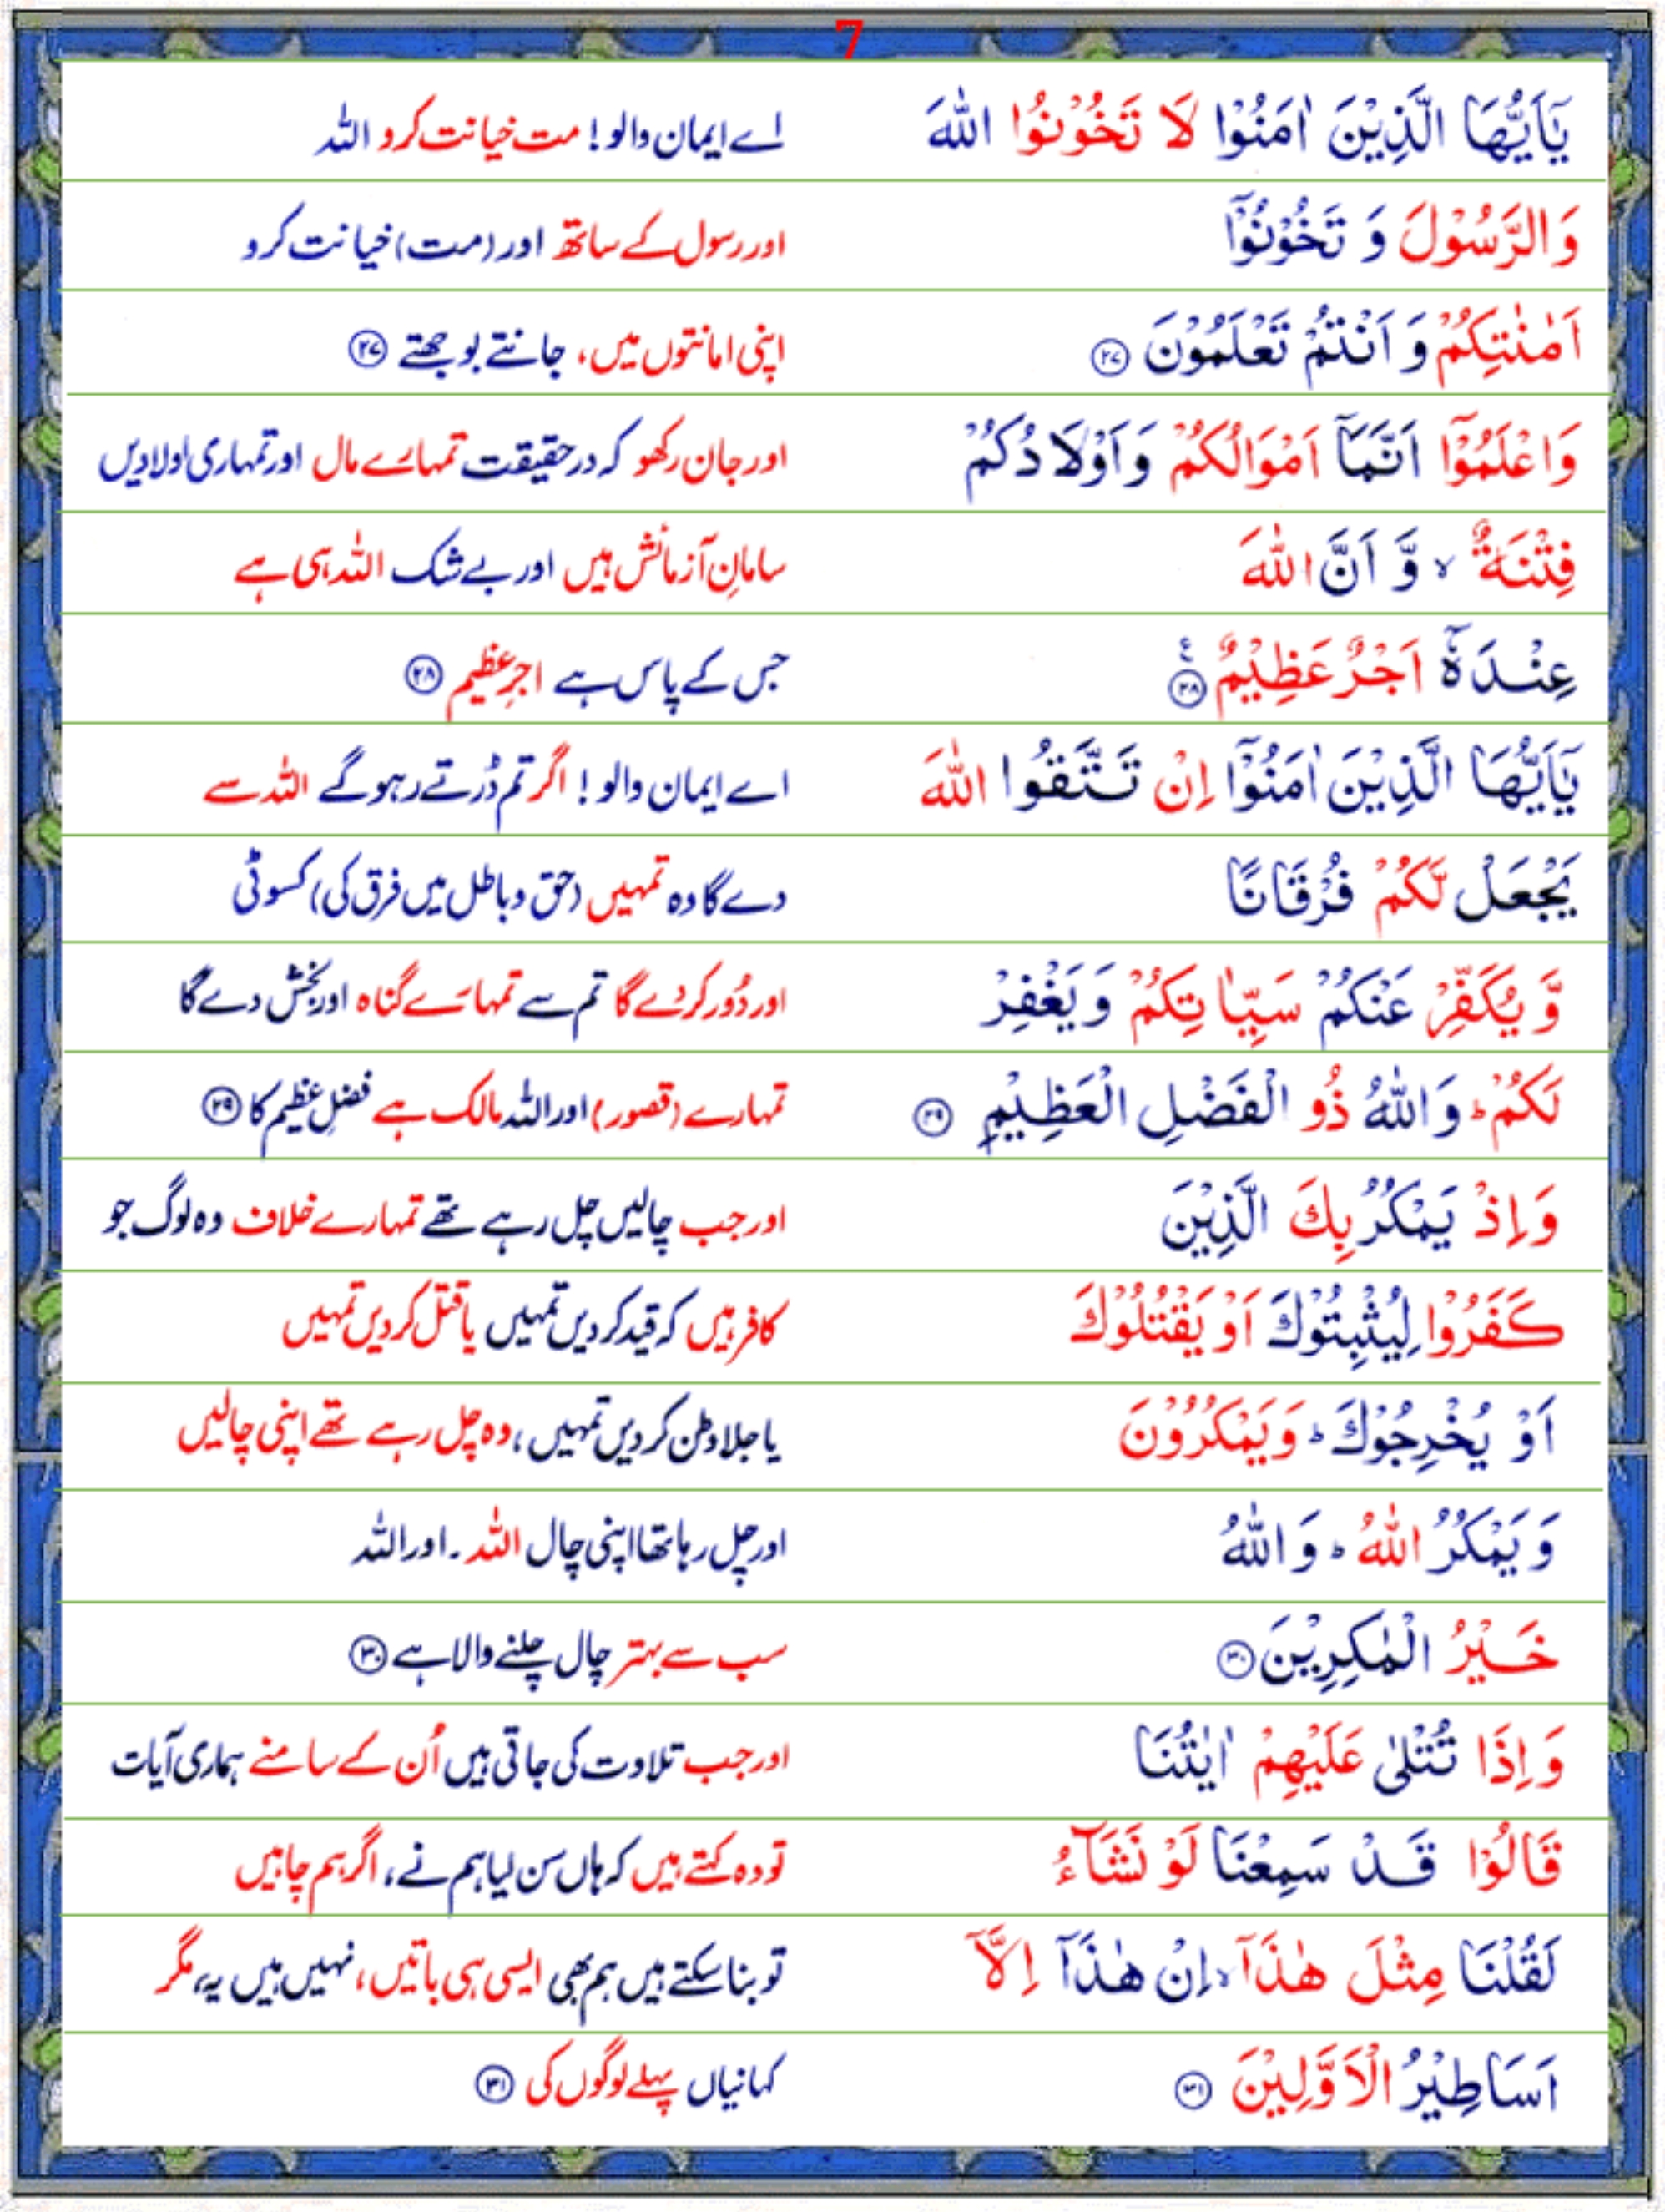 7
يٰۤاَيُّهَا الَّذِيْنَ اٰمَنُوْا لَا تَخُوْنُوا اللّٰهَ اے ایمان والو! مت خیانت کرو اللہ
وَالرَّسُوْلَ وَ تَخُوْنُوْۤا اور رسول کے ساتھ اور (مت) خیانت کرو
اَمٰنٰتِكُمْ وَ اَنْتُمْ تَعْلَمُوْنَ ۲۷ اپنی امانتوں میں، جانتے بوجھتے ۲۷
وَاعْلَمُوْۤا اَنَّمَاۤ اَمْوَالُكُمْ وَاَوْلَادُكُمْ اور جان رکھو کہ درحقیقت تمہارے مال اور تمہاری اولادیں
فِتْنَةٌ ۙ وَّ اَنَّ اللّٰهَ سامانِ آزمائش ہیں اور بے شک اللہ ہی ہے
عِنْدَهٗۤ اَجْرٌ عَظِيْمٌ ۲۸ ع جس کے پاس ہے اجرِ عظیم ۲۸
يٰۤاَيُّهَا الَّذِيْنَ اٰمَنُوْۤا اِنْ تَتَّقُوا اللّٰهَ اے ایمان والو! اگر تم ڈرتے رہو گے اللہ سے
يَجْعَلْ لَّكُمْ فُرْقَانًا دے گا وہ تمہیں (حق و باطل میں فرق کی) کسوٹی
وَّ يُكَفِّرْ عَنْكُمْ سَيِّاٰتِكُمْ وَيَغْفِرْ اور دُور کردے گا تم سے تمہارے گناہ اور بخش دے گا
لَكُمْ ؕ وَاللّٰهُ ذُو الْفَضْلِ الْعَظِيْمِ ۲۹ تمہارے (قصور) اور اللہ مالک ہے فضلِ عظیم کا ۲۹
وَاِذْ يَمْكُرُ بِكَ الَّذِيْنَ اور جب چالیں چل رہے تھے تمہارے خلاف وہ لوگ جو
كَفَرُوْا لِيُثْبِتُوْكَ اَوْ يَقْتُلُوْكَ کافر ہیں کہ قید کردیں تمہیں یا قتل کردیں تمہیں
اَوْ يُخْرِجُوْكَ ؕ وَيَمْكُرُوْنَ یا جلا وطن کردیں تمہیں، وہ چل رہے تھے اپنی چالیں
وَيَمْكُرُ اللّٰهُ ؕ وَاللّٰهُ اور چل رہا تھا اپنی چال اللہ۔ اور اللہ
خَيْرُ الْمٰكِرِيْنَ ۳۰ سب سے بہتر چال چلنے والا ہے ۳۰
وَاِذَا تُتْلٰى عَلَيْهِمْ اٰيٰتُنَا اور جب تلاوت کی جاتی ہیں اُن کے سامنے ہماری آیات
قَالُوْا قَدْ سَمِعْنَا لَوْ نَشَآءُ تو وہ کہتے ہیں کہ ہاں سن لیا ہم نے، اگر ہم چاہیں
لَقُلْنَا مِثْلَ هٰذَاۤ ۙ اِنْ هٰذَاۤ اِلَّاۤ تو بنا سکتے ہیں ہم بھی ایسی ہی باتیں، نہیں ہیں یہ، مگر
اَسَاطِيْرُ الْاَوَّلِيْنَ ۳۱ کہانیاں پہلے لوگوں کی ۳۱